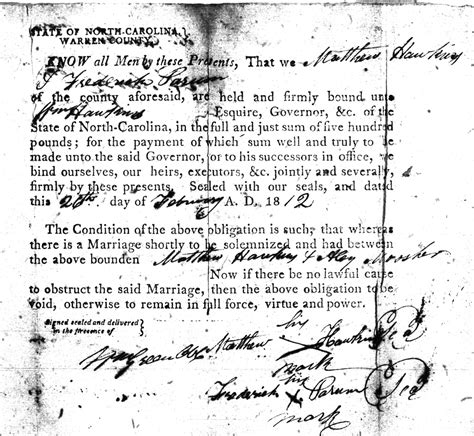 STATE OF NORTH-CAROLINA,
WARREN COUNTY.
KNOW all Men by these Presents, That we Matthew Hawkins
& Frederick Parum
of the county aforesaid, are held and firmly bound unto
Wm Hawkins Esquire, Governor, &c. of the
State of North-Carolina, in the full and just sum of five hundred
pounds; for the payment of which sum well and truly to be
made unto the said Governor, or to his successors in office, we
bind ourselves, our heirs, executors, &c. jointly and severally,
firmly by these presents. Sealed with our seals, and dated
this 20th day of February A. D. 1812
The Condition of the above obligation is such; that whereas
there is a Marriage shortly to be solemnized and had between
the above bounden Matthew Hawkins &
Now if there be no lawful cause
to obstruct the said Marriage, then the above obligation to be
void, otherwise to remain in full force, virtue and power.
Signed sealed and delivered
in the presence of
his
Matthew X Hawkins
mark
his
Frederick X Parum
mark